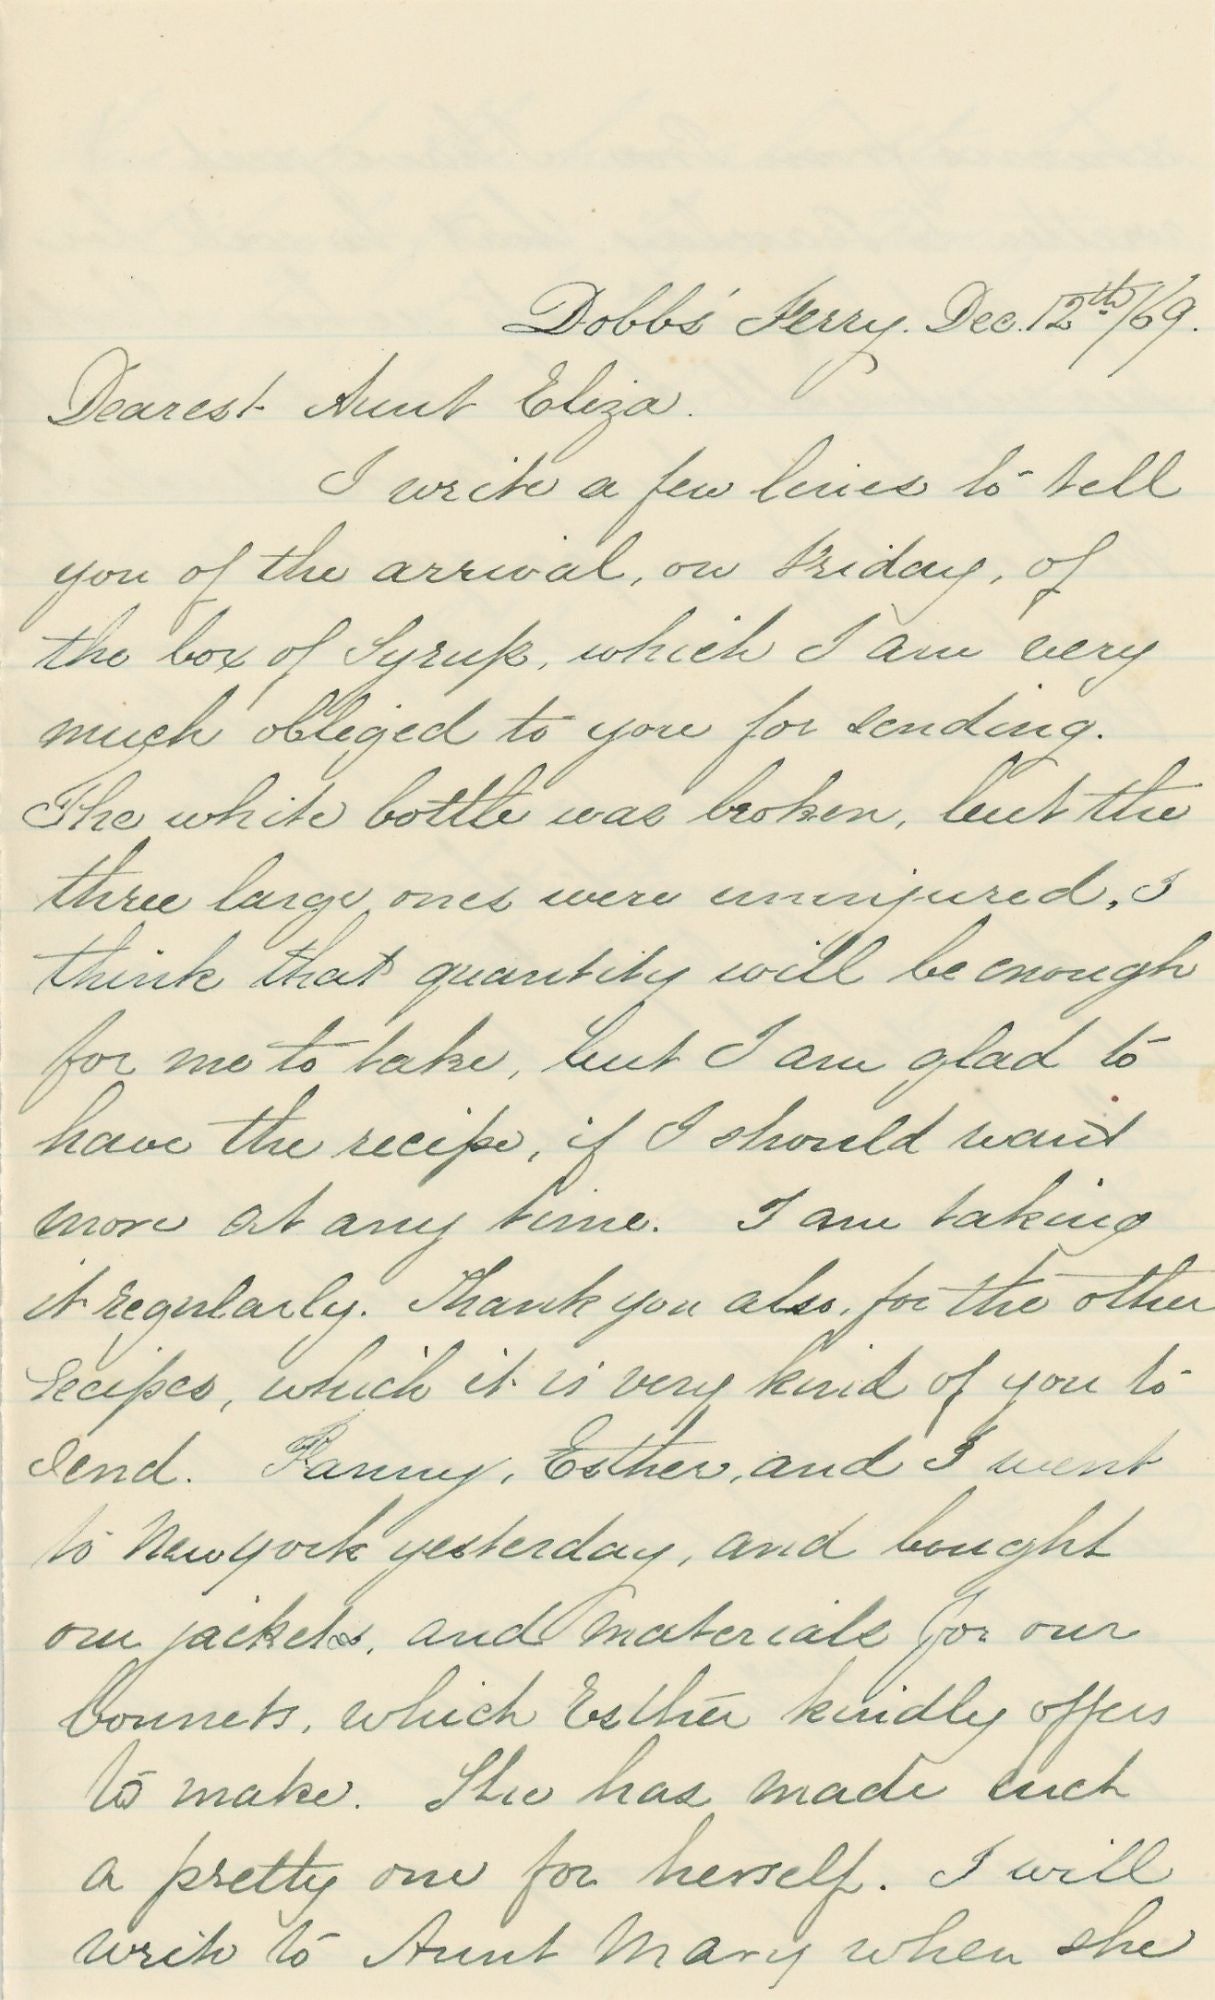 Dobbs' Ferry. Dec. 12th/69.
Dearest Aunt Eliza.
I write a few lines to tell
you of the arrival, on Friday, of
the box of Syrup, which I am very
much obliged to you for sending.
The white bottle was broken, but the
three large ones were uninjured. I
think that quantity will be enough
for me to take, but I am glad to
have the recipe, if I should want
more at any time. I am taking
it regularly. Thank you also, for the other
recipes, which it is very kind of you to
send. Fanny, Esther, and I went
to New York yesterday, and bought
our jackets, and materials for our
bonnets, which Esther kindly offers
to make. She has made such
a pretty one for herself. I will
write to Aunt Mary when she